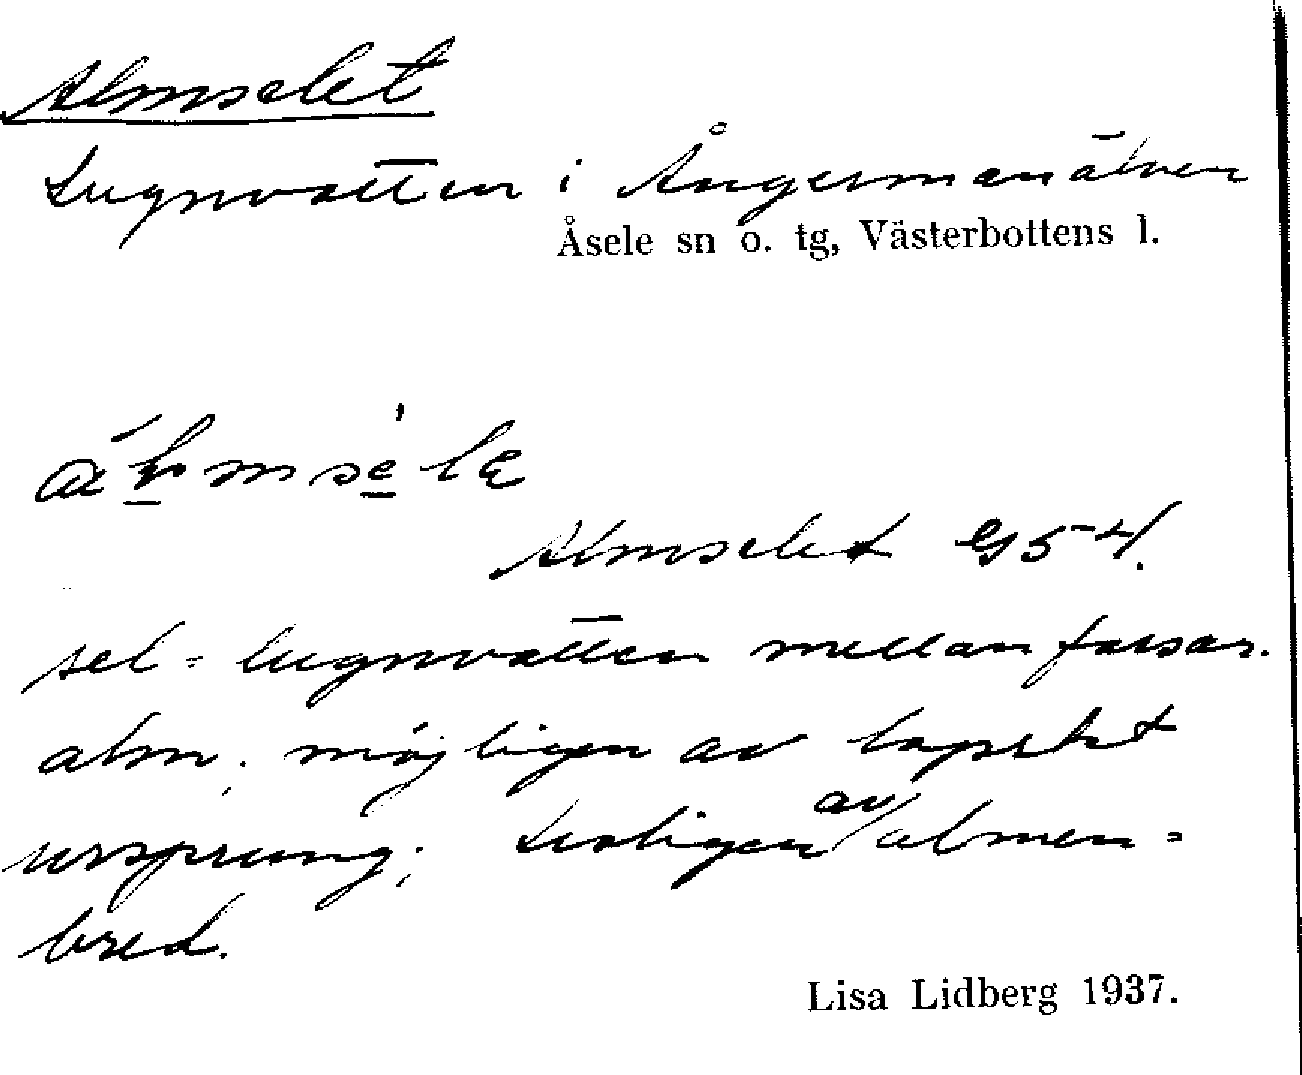 Almselet
Lugnvatten i Ångermanälven
Åsele sn o. tg, Västerbottens l.
Almselet G 5 4.
sel = lugnvatten mellan forsar.
alm, möjligen av lapskt
ursprung; troligen av almen =
bred.
Lisa Lidberg 1937.